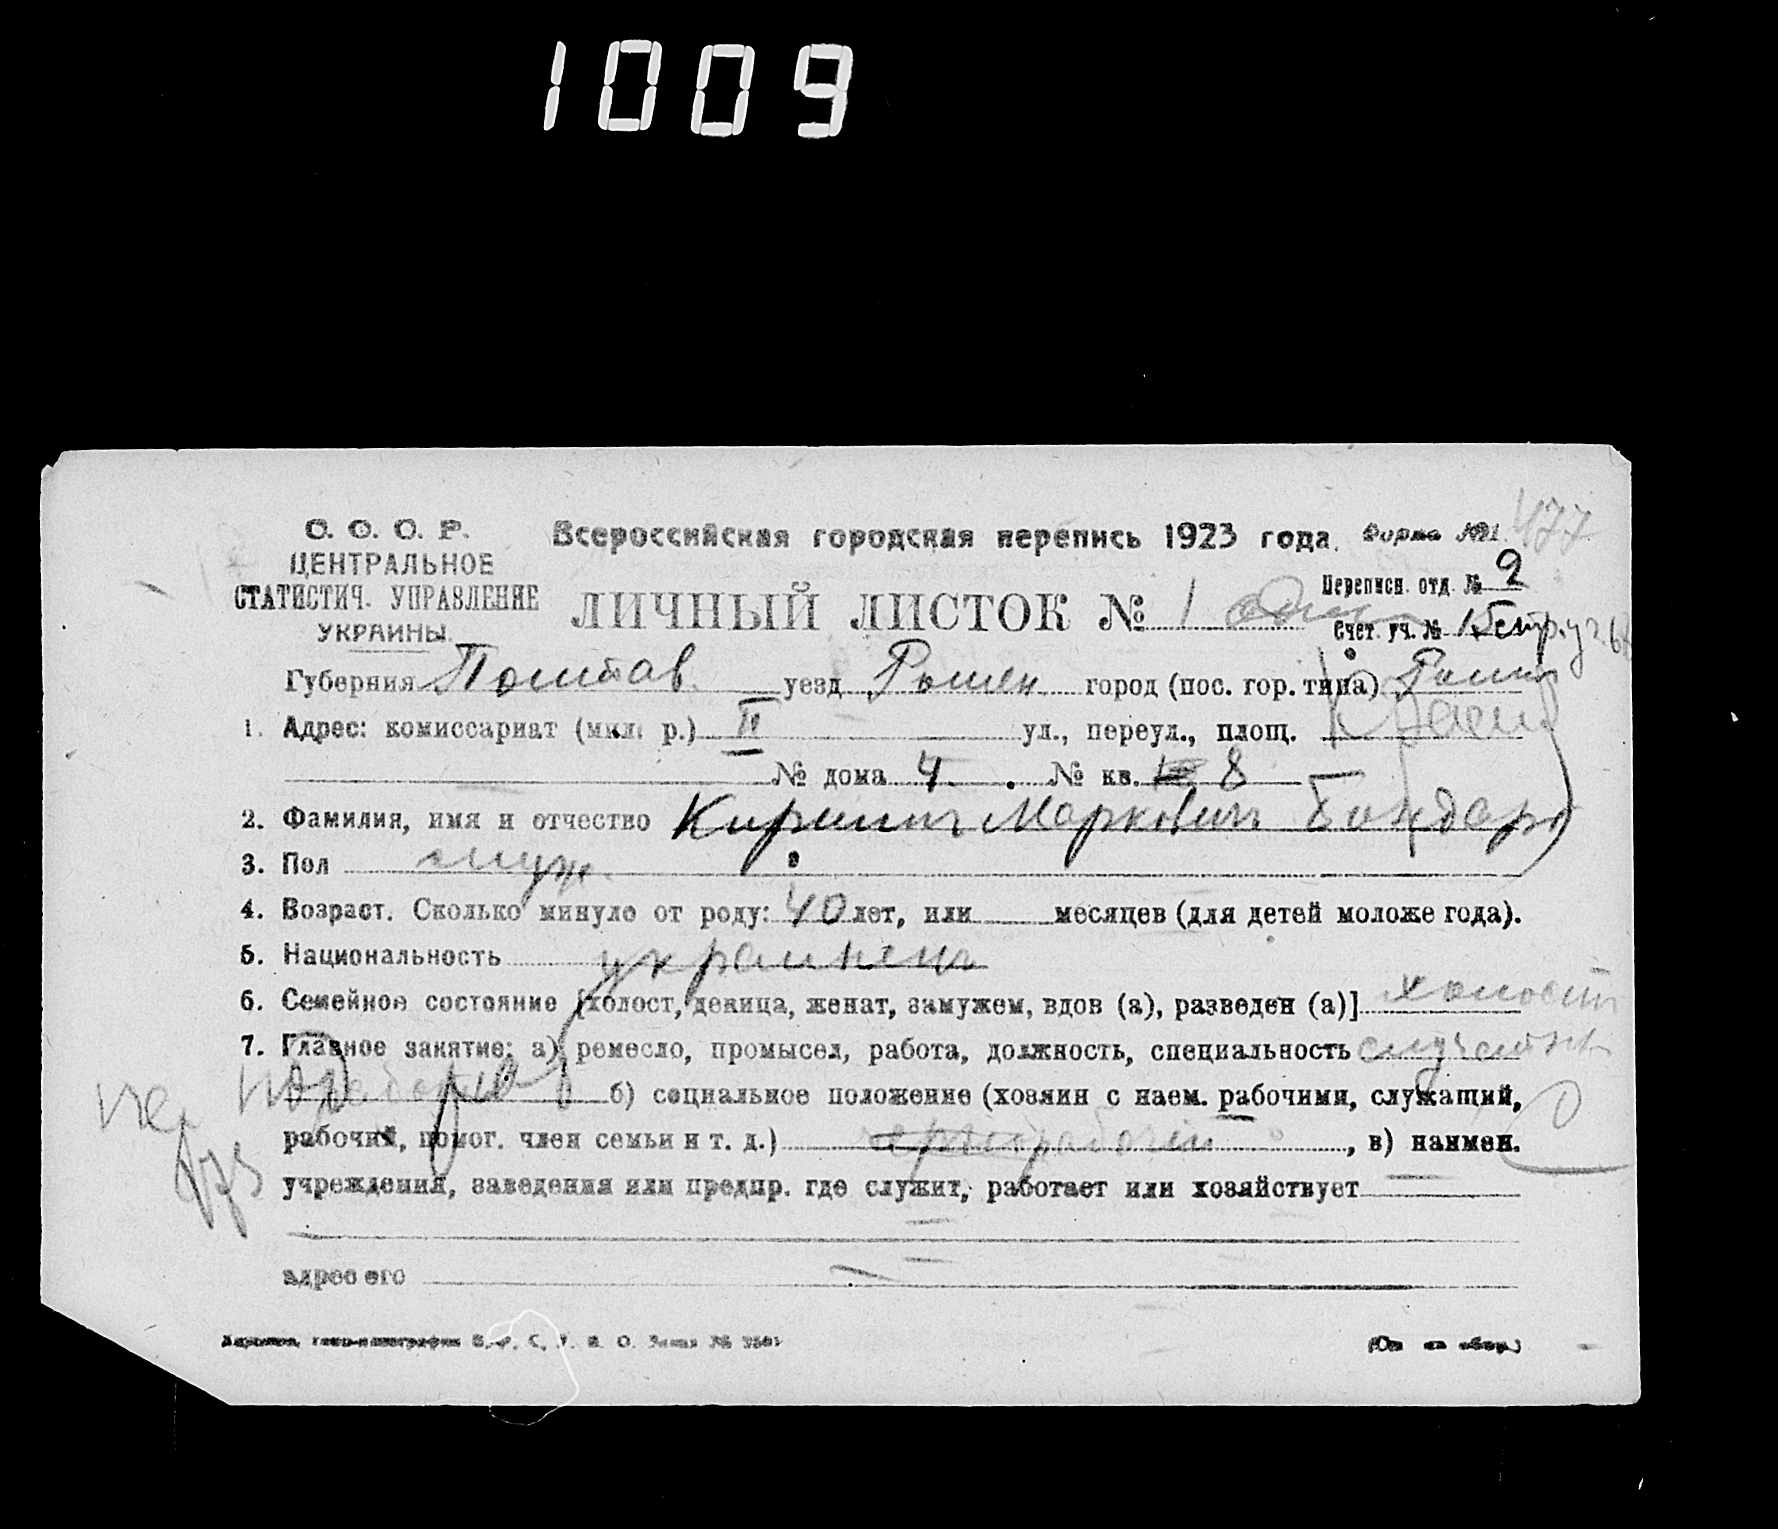 1009
С. С. С. Р.
ЦЕНТРАЛЬНОЕ
СТАТИСТИЧ. УПРАВЛЕНИЕ
УКРАИНЫ.
Всероссийская городская перепись 1923 года. Форма №1. 477
ЛИЧНЫЙ ЛИСТОК № 1
Переписн. отд. № 2
Счет. уч. № 15
Губерния Полтав. уезд Ромен город (пос. гор. типа) Ромны
1. Адрес: комиссариат (мил. р.) II ул., переул., площ.
№ дома 4. № кв. 8
2. Фамилия, имя и отчество Кирилл Маркович Бондарь
3. Пол муж.
4. Возраст. Сколько минуло от роду: 40 лет, или месяцев (для детей моложе года).
5. Национальность украинець
6. Семейное состояние [холост, девица, женат, замужем, вдов (а), разведен (а)] холост
7. Главное занятие: а) ремесло, промысел, работа, должность, специальность
б) социальное положение (хозяин с наем. рабочими, служащий,
рабочий, помог. член семьи и т. д.) чернорабочий, в) наимен.
учреждения, заведения или предпр. где служит, работает или хозяйствует
адрес его
(См. на обор.)